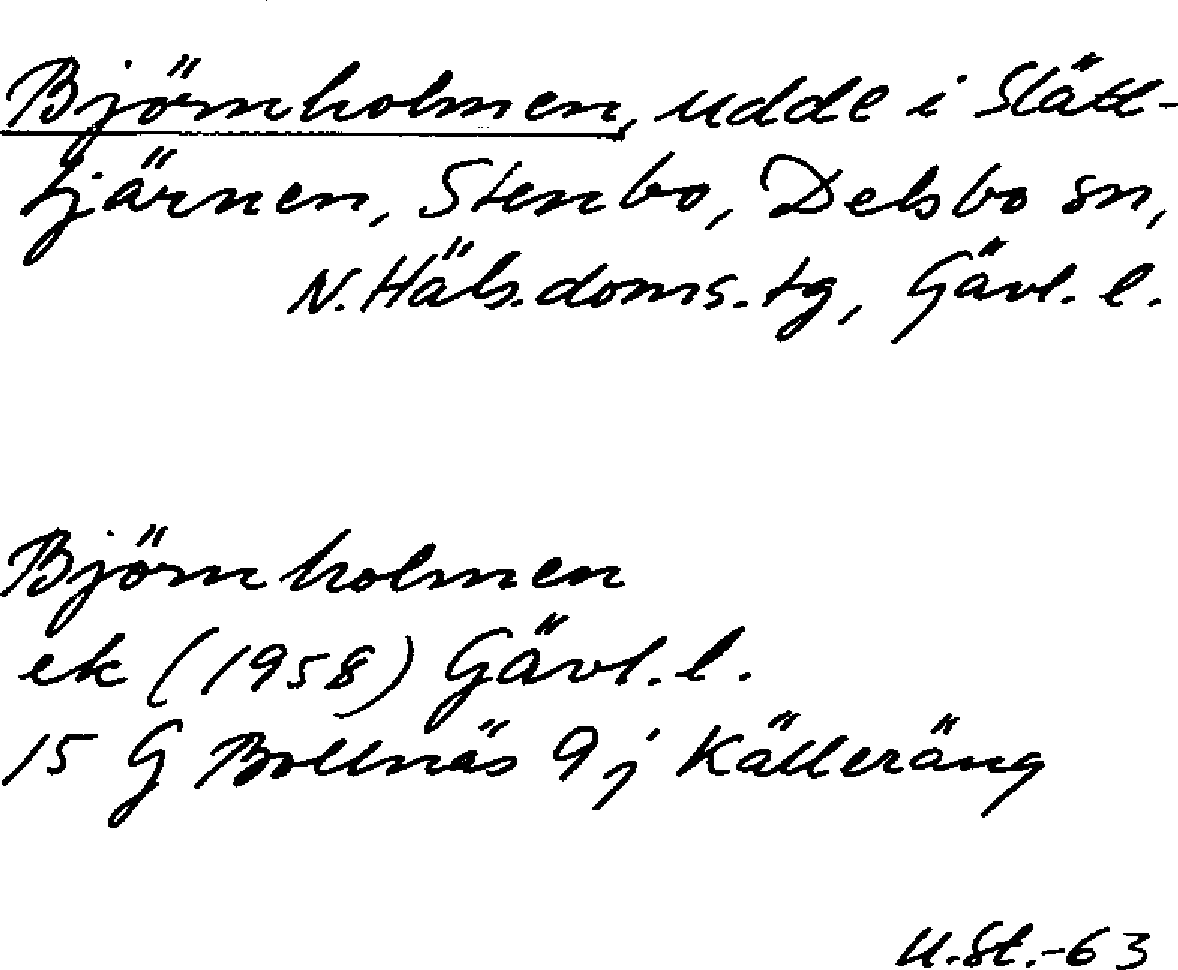 Björnholmen, udde i Slätt-
tjärnen, Stenbo, Delsbo sn,
N.Häls.doms.tg, Gävl. l.
Björnholmen
ek (1958) Gävl. l.
15 G Bollnäs 9 j Källeräng
U.St.-63